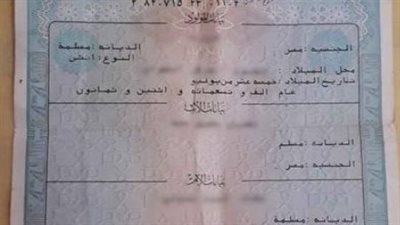 بيانات المولود
الجنسية : مصر الديانة : مسلمة
النوع : انثى
محل الميلاد :
تاريخ الميلاد : خمسة عشر من يوليو
عام الف و تسعمائة و اثنين و ثمانون
بيانات الأب
الديانة : مسلم
الجنسية : مصر
بيانات الأم
الديانة : مسلمة